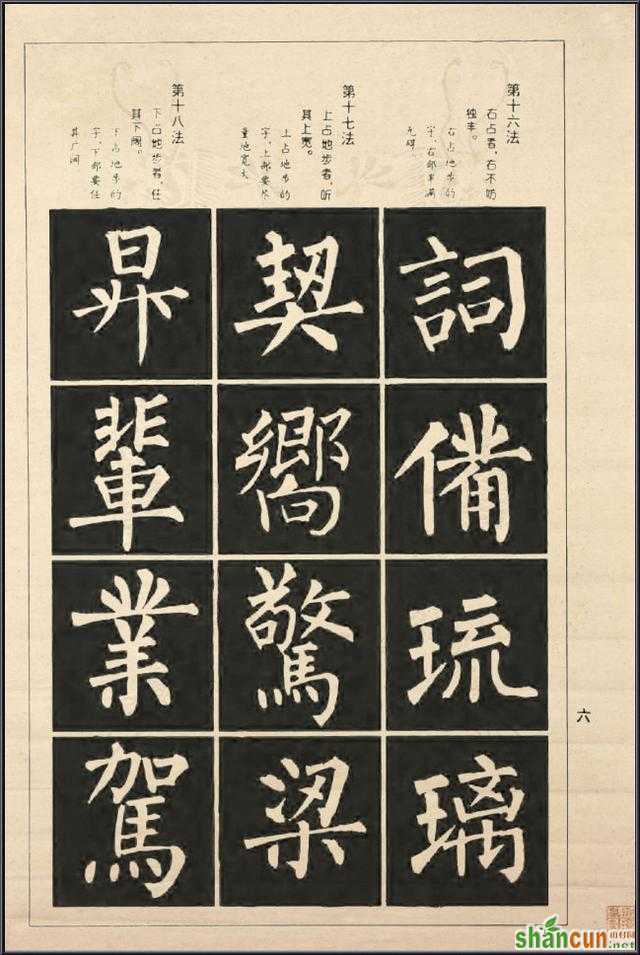 第十六法
右占者，右不妨
独丰。
右占地步的
字，右部丰满
无碍。
詞
備
琉
璃
第十七法
上占地步者，听
其上宽。
上占地步的
字，上部要尽
量地宽大
契
嚮
驚
梁
第十八法
下占地步者，任
其下阔。
下占地步的
字，下部要任
其广阔
昇
輩
業
駕
六
shancun
山村网
.net